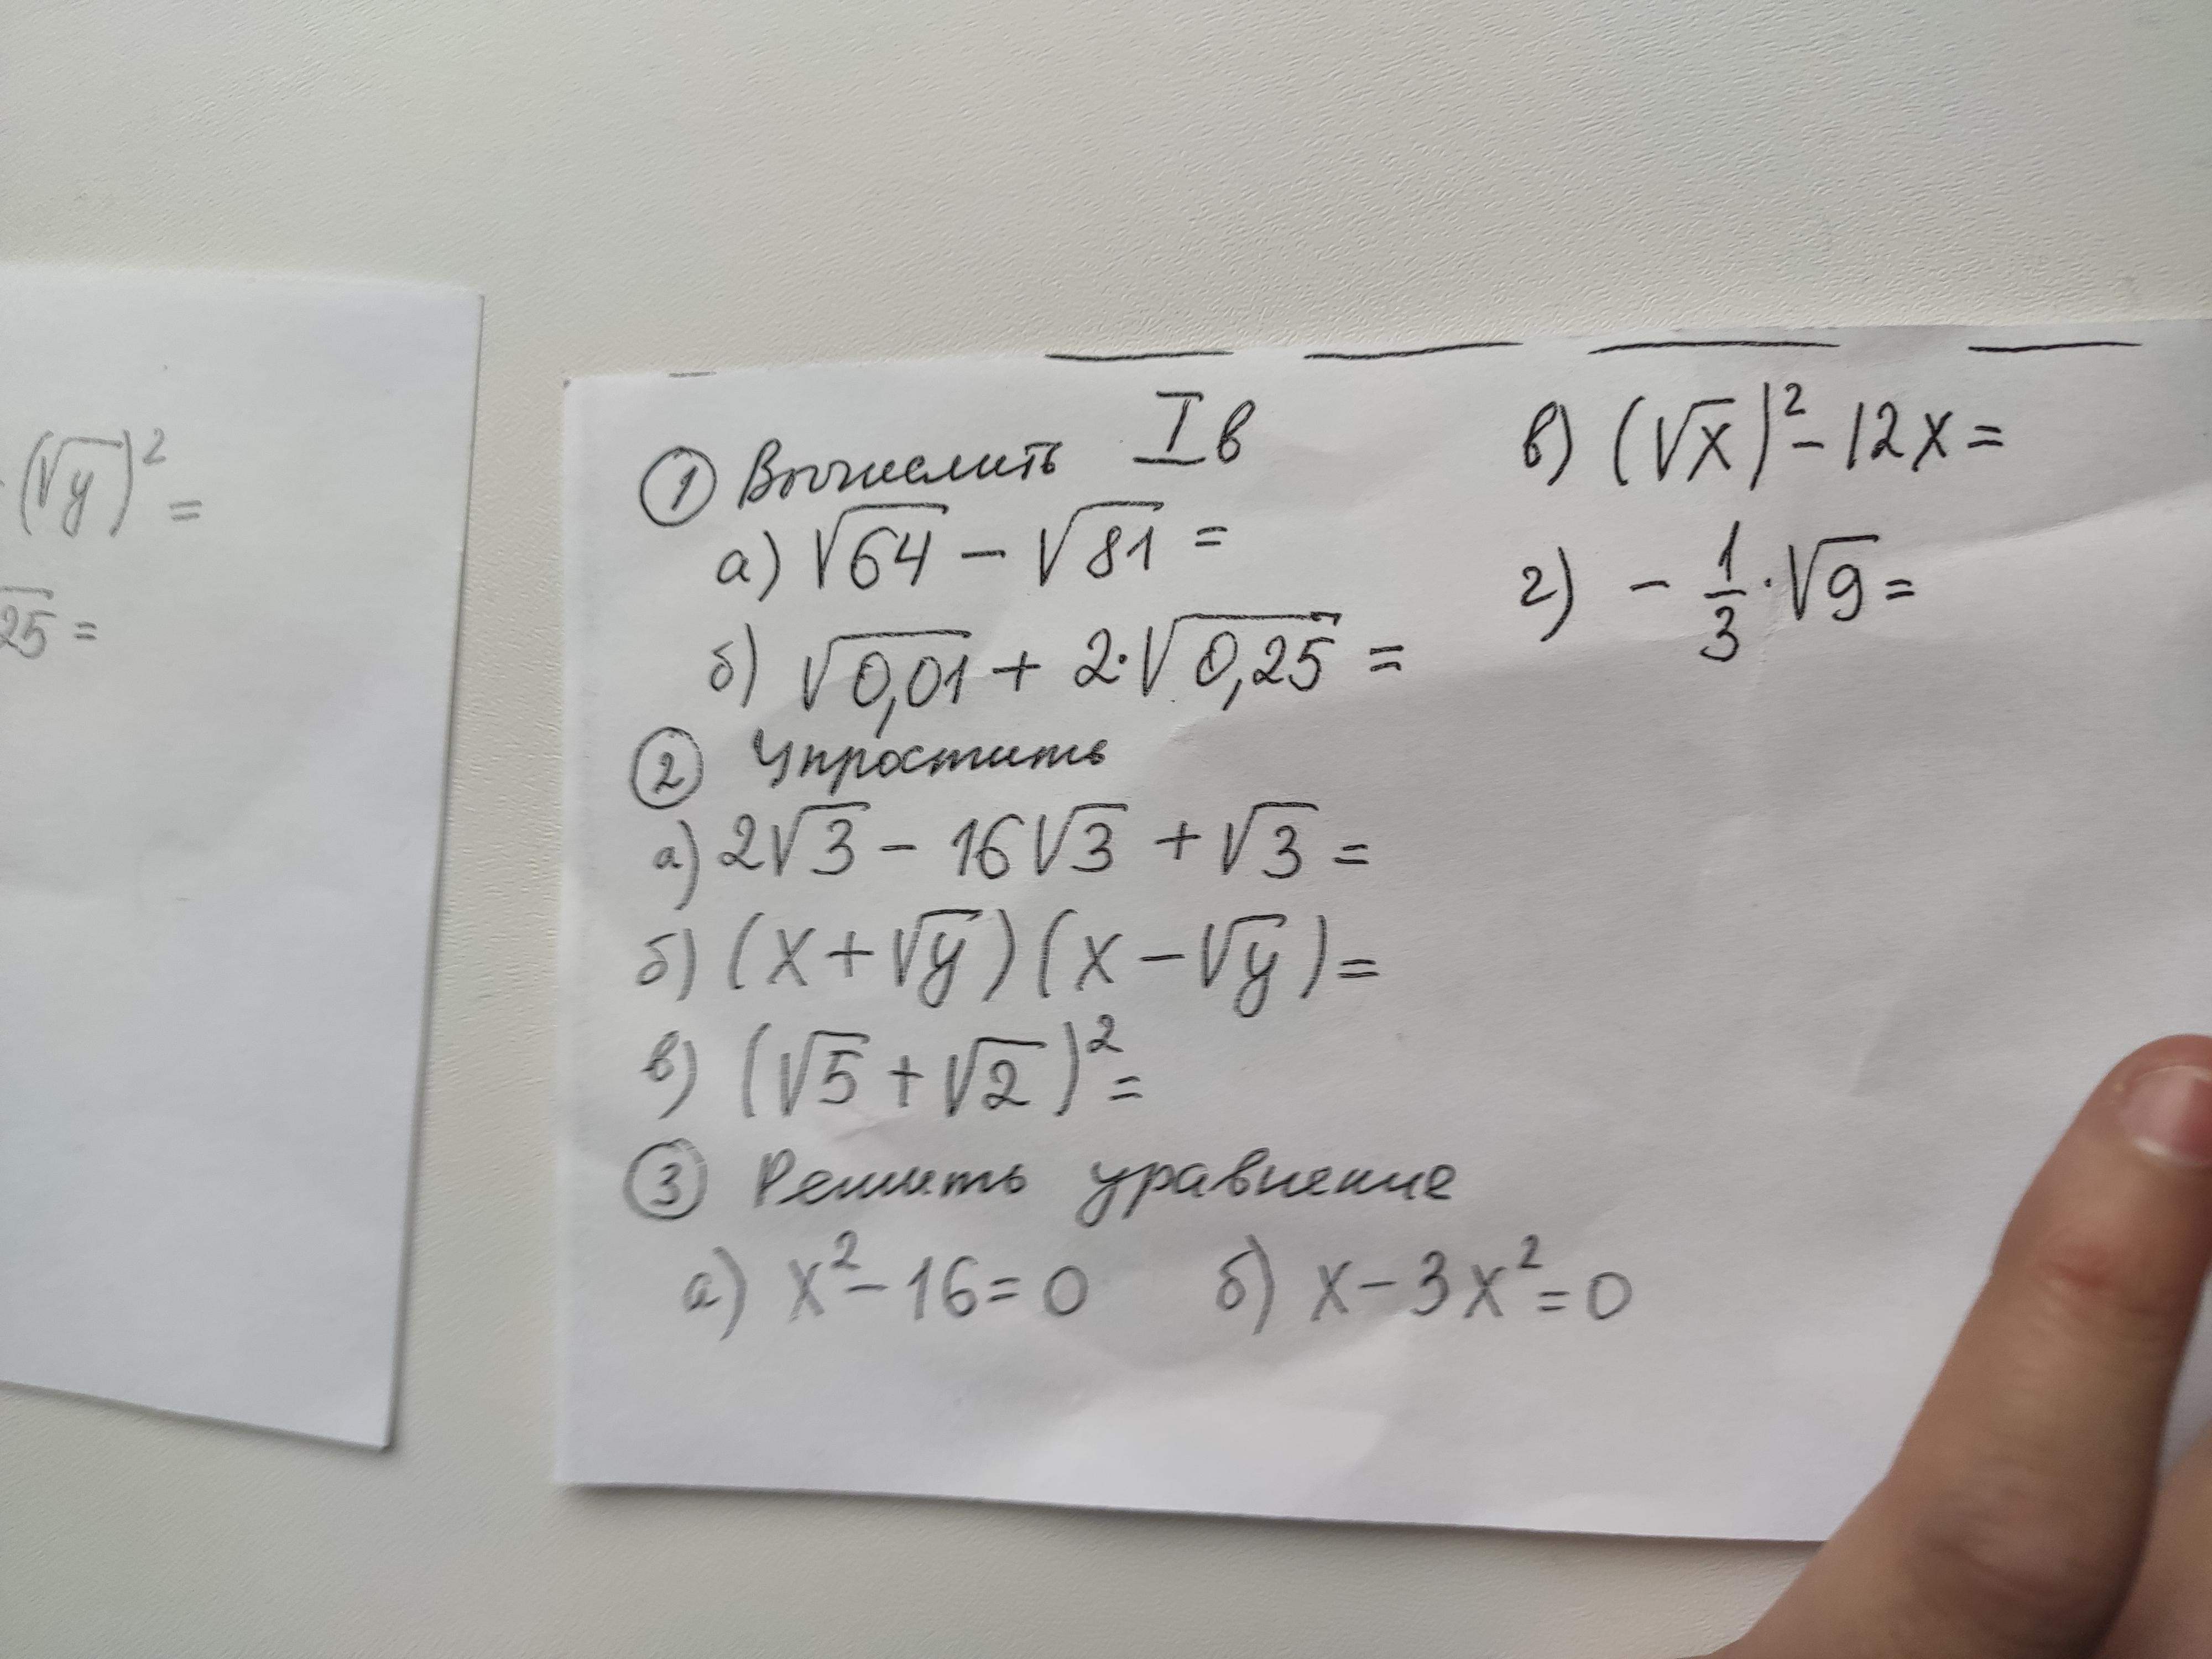 (√y)² =
25 =
I в
① Вычислить
а) √64 − √81 =
б) √0,01 + 2·√0,25 =
в) (√x)² − 12x =
г) − 1/3 · √9 =
② Упростить
а) 2√3 − 16√3 + √3 =
б) (x + √y)(x − √y) =
в) (√5 + √2)² =
③ Решить уравнение
а) x² − 16 = 0 б) x − 3x² = 0